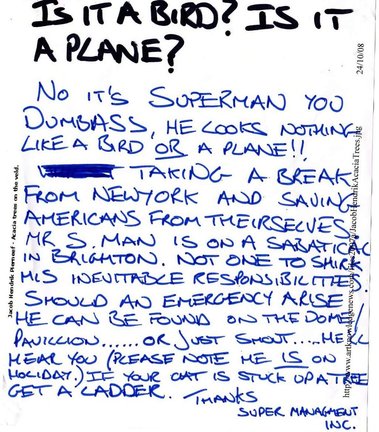 IS IT A BIRD? IS IT
A PLANE?
NO IT'S SUPERMAN YOU
DUMBASS, HE LOOKS NOTHING
LIKE A BIRD OR A PLANE!!
TAKING A BREAK
FROM NEWYORK AND SAVING
AMERICANS FROM THEIRSELVES
MR S. MAN IS ON A SABATICAL
IN BRIGHTON. NOT ONE TO SHIRK
HIS INEVITABLE RESPONSIBILITIES
SHOULD AN EMERGENCY ARISE
HE CAN BE FOUND ON THE DOME/
PAVILLION...... OR JUST SHOUT....HE'LL
HEAR YOU (PLEASE NOTE HE IS ON
HOLIDAY.) IF YOUR CAT IS STUCK UP A TREE
GET A LADDER.
THANKS
SUPER MANAGMENT
INC.
24/10/08
Jacob Hendrik Pierneef - Acacia trees on the veld.